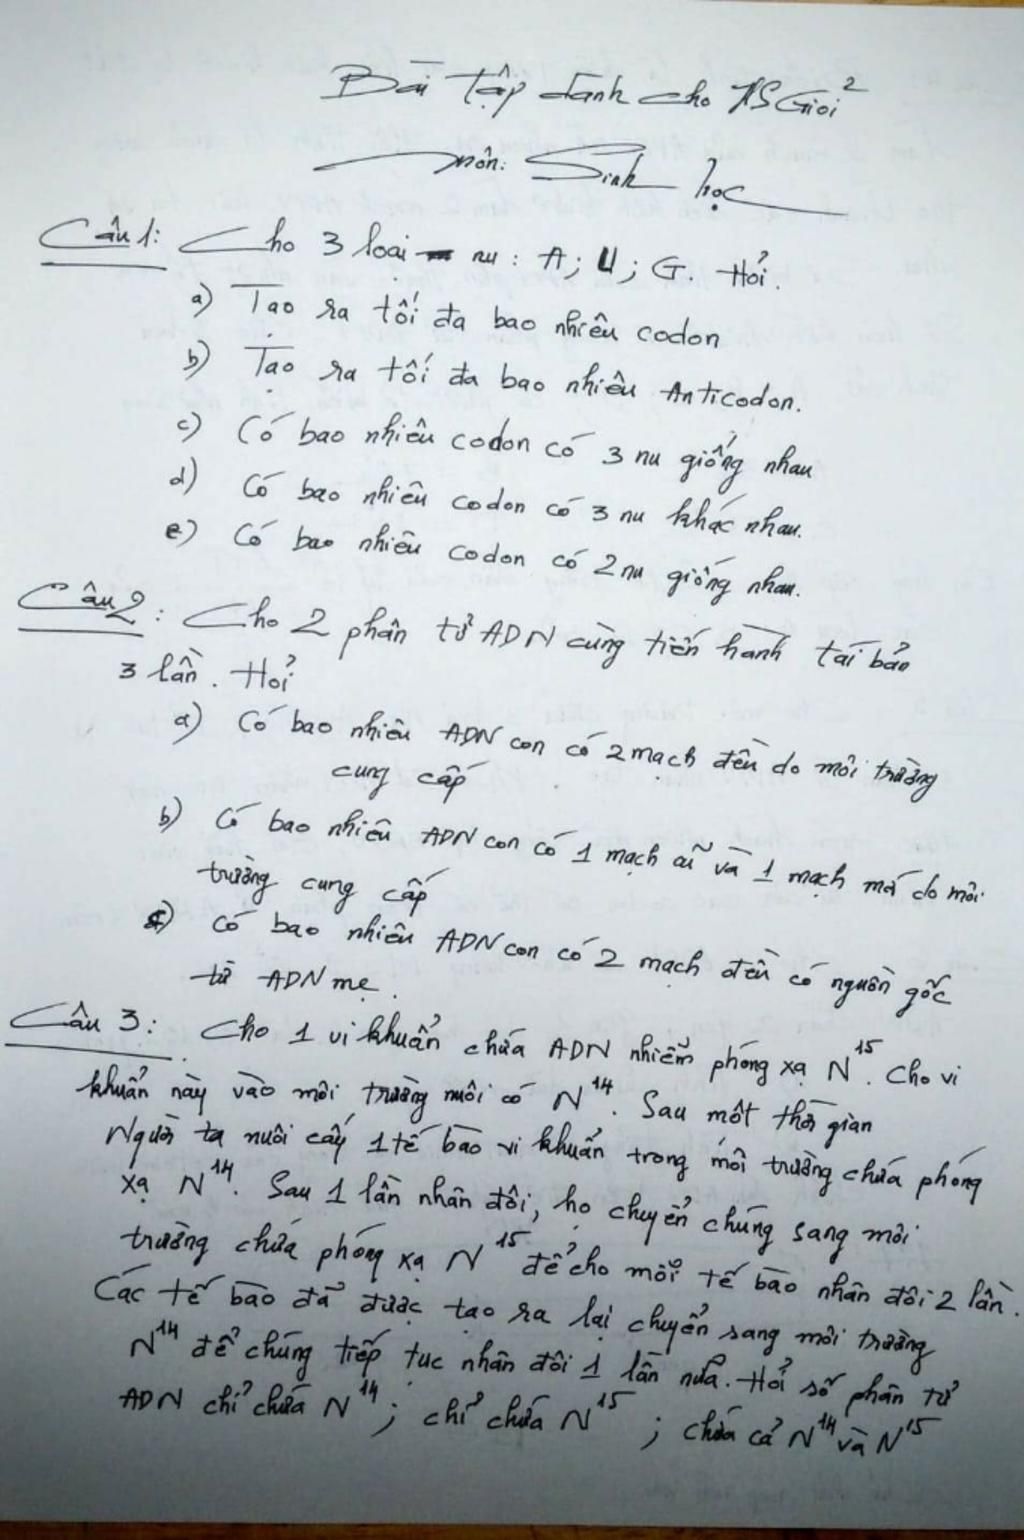 Bài tập dành cho HS Giỏi²
Môn: Sinh học
Câu 1: Cho 3 loại nu: A; U; G. Hỏi.
a) Tạo ra tối đa bao nhiêu codon
b) Tạo ra tối đa bao nhiêu Anticodon.
c) Có bao nhiêu codon có 3 nu giống nhau
d) Có bao nhiêu codon có 3 nu khác nhau.
e) Có bao nhiêu codon có 2 nu giống nhau.
Câu 2: Cho 2 phân tử ADN cùng tiến hành tái bản
3 lần. Hỏi
a) Có bao nhiêu ADN con có 2 mạch đều do môi trường
cung cấp.
b) Có bao nhiêu ADN con có 1 mạch cũ và 1 mạch mới do môi
trường cung cấp
c) Có bao nhiêu ADN con có 2 mạch đều có nguồn gốc
từ ADN mẹ.
Câu 3: Cho 1 vi khuẩn chứa ADN nhiễm phóng xạ N¹⁵. Cho vi
khuẩn này vào môi trường nuôi có N¹⁴. Sau một thời gian
Người ta nuôi cấy 1 tế bào vi khuẩn trong môi trường chứa phóng
xạ N¹⁴. Sau 1 lần nhân đôi, họ chuyển chúng sang môi
trường chứa phóng xạ N¹⁵ để cho mỗi tế bào nhân đôi 2 lần.
Các tế bào đã được tạo ra lại chuyển sang môi trường
N¹⁴ để chúng tiếp tục nhân đôi 1 lần nữa. Hỏi số phân tử
ADN chỉ chứa N¹⁴; chỉ chứa N¹⁵; chứa cả N¹⁴ và N¹⁵